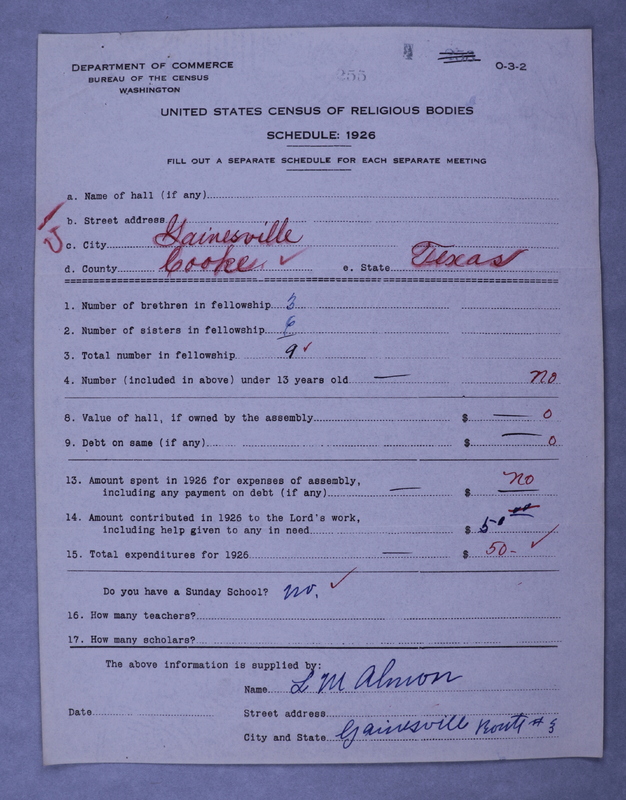 DEPARTMENT OF COMMERCE
BUREAU OF THE CENSUS
WASHINGTON
255
O-3-2
UNITED STATES CENSUS OF RELIGIOUS BODIES
SCHEDULE: 1926
FILL OUT A SEPARATE SCHEDULE FOR EACH SEPARATE MEETING
a. Name of hall (if any)
b. Street address
c. City Gainesville
d. County Cooke e. State Texas
1. Number of brethren in fellowship 3
2. Number of sisters in fellowship 6
3. Total number in fellowship 9
4. Number (included in above) under 13 years old — no
8. Value of hall, if owned by the assembly $ — 0
9. Debt on same (if any) $ — 0
13. Amount spent in 1926 for expenses of assembly,
including any payment on debt (if any) — $ no
14. Amount contributed in 1926 to the Lord's work,
including help given to any in need $ 50 00
15. Total expenditures for 1926 — $ 50-
Do you have a Sunday School? no.
16. How many teachers?
17. How many scholars?
The above information is supplied by:
Name L M Almon
Date Street address
City and State Gainesville Route #